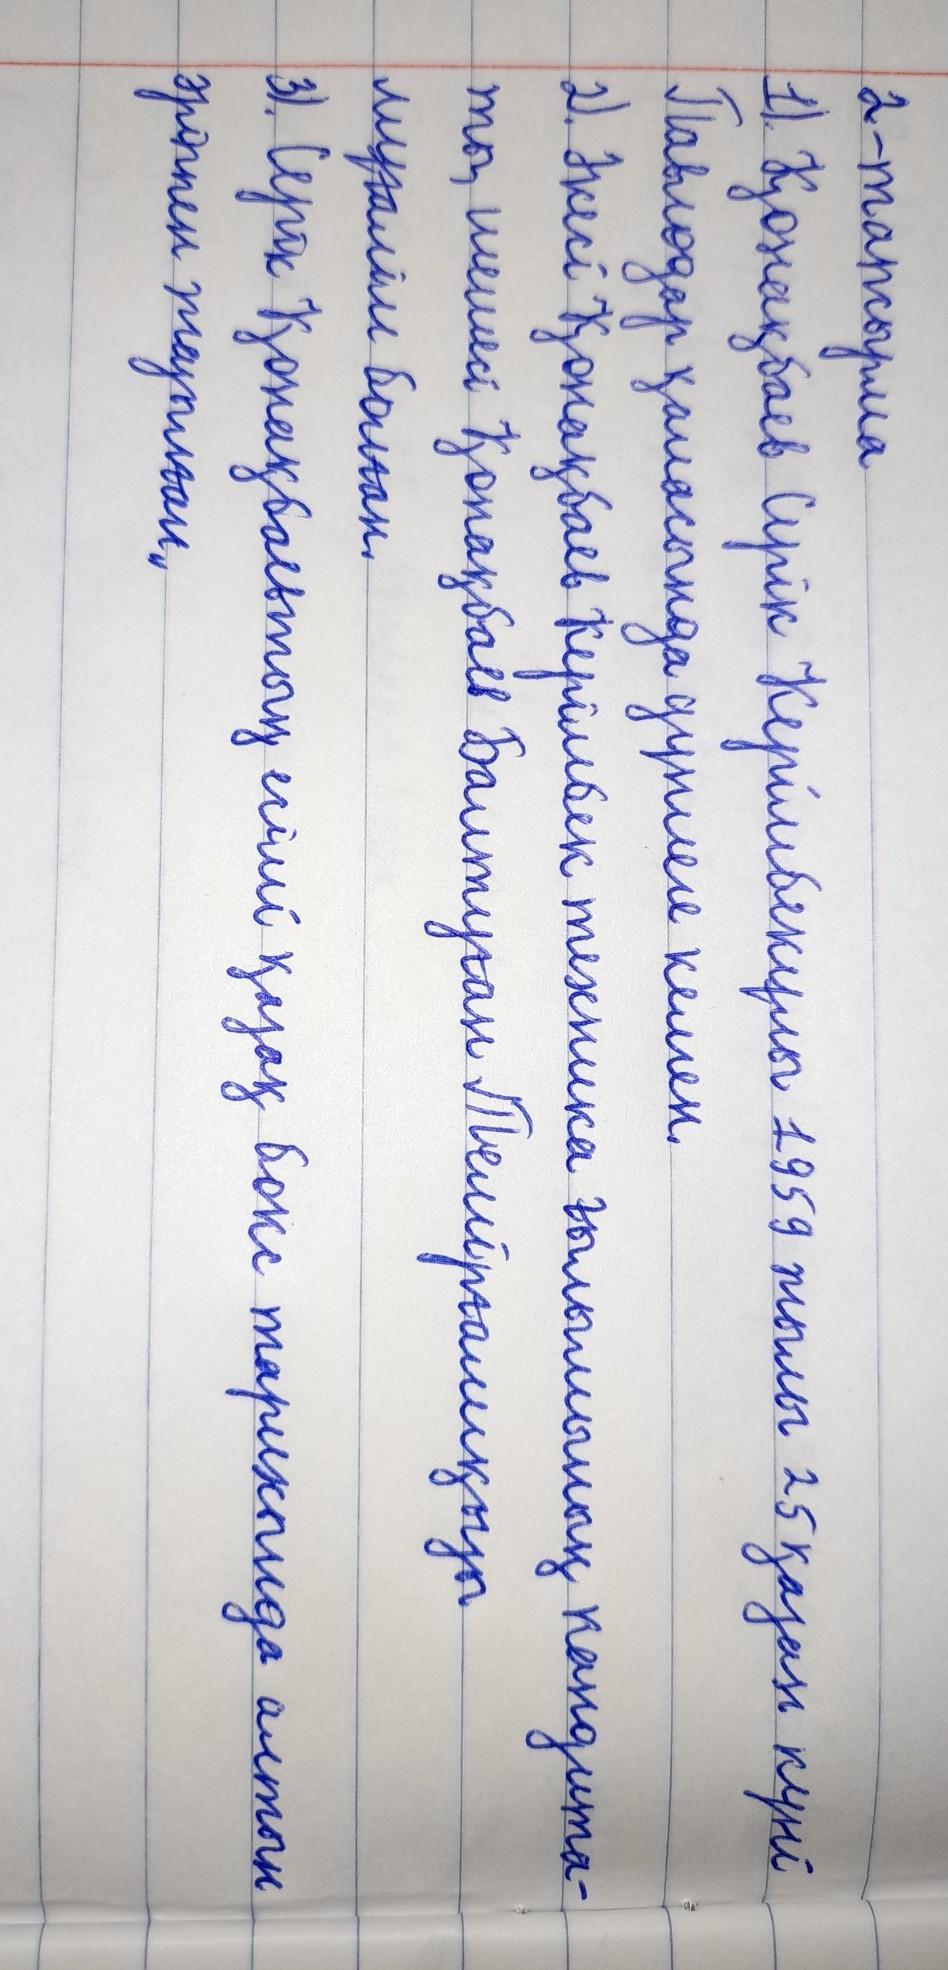 2-тапсырма
1). Қонақбаев Серік Керімбекұлы 1959 жылы 25 қазан күні
Павлодар қаласында дүниеге келген.
2). Әкесі Қонақбаев Керімбек техника ғылымының кандита-
ты, шешесі Қонақбаев Балтуған Темірғалиқызы
мұғалім болған.
3). Серік Қонақбаевтың есімі қазақ бокс тарихында алтын
әріппен жазылған.